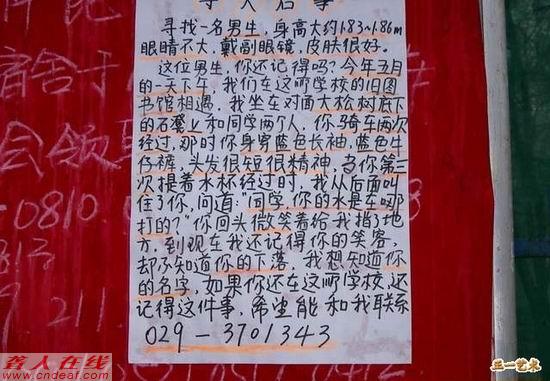 寻人启事
寻找一名男生,身高大约1.83~1.86m
眼睛不大,戴副眼镜,皮肤很好。
这位男生,你还记得吗?今年五月
的一天下午,我们在这所学校的旧图
书馆相遇,我坐在对面大松树底下
的石凳上和同学两个人,你骑车两次
经过,那时你身穿蓝色长袖,蓝色牛
仔裤,头发很短很精神,当你第三
次提着水杯经过时,我从后面叫
住了你,问道:"同学,你的水是在哪
打的?"你回头微笑着给我指了地
方,到现在我还记得你的笑容,
却不知道你的下落,我想知道你
的名字,如果你还在这所学校,还
记得这件事,希望能和我联系
029-3701343
宿舍于
会领
-0810
211
聋人在线
http://www.cndeaf.com